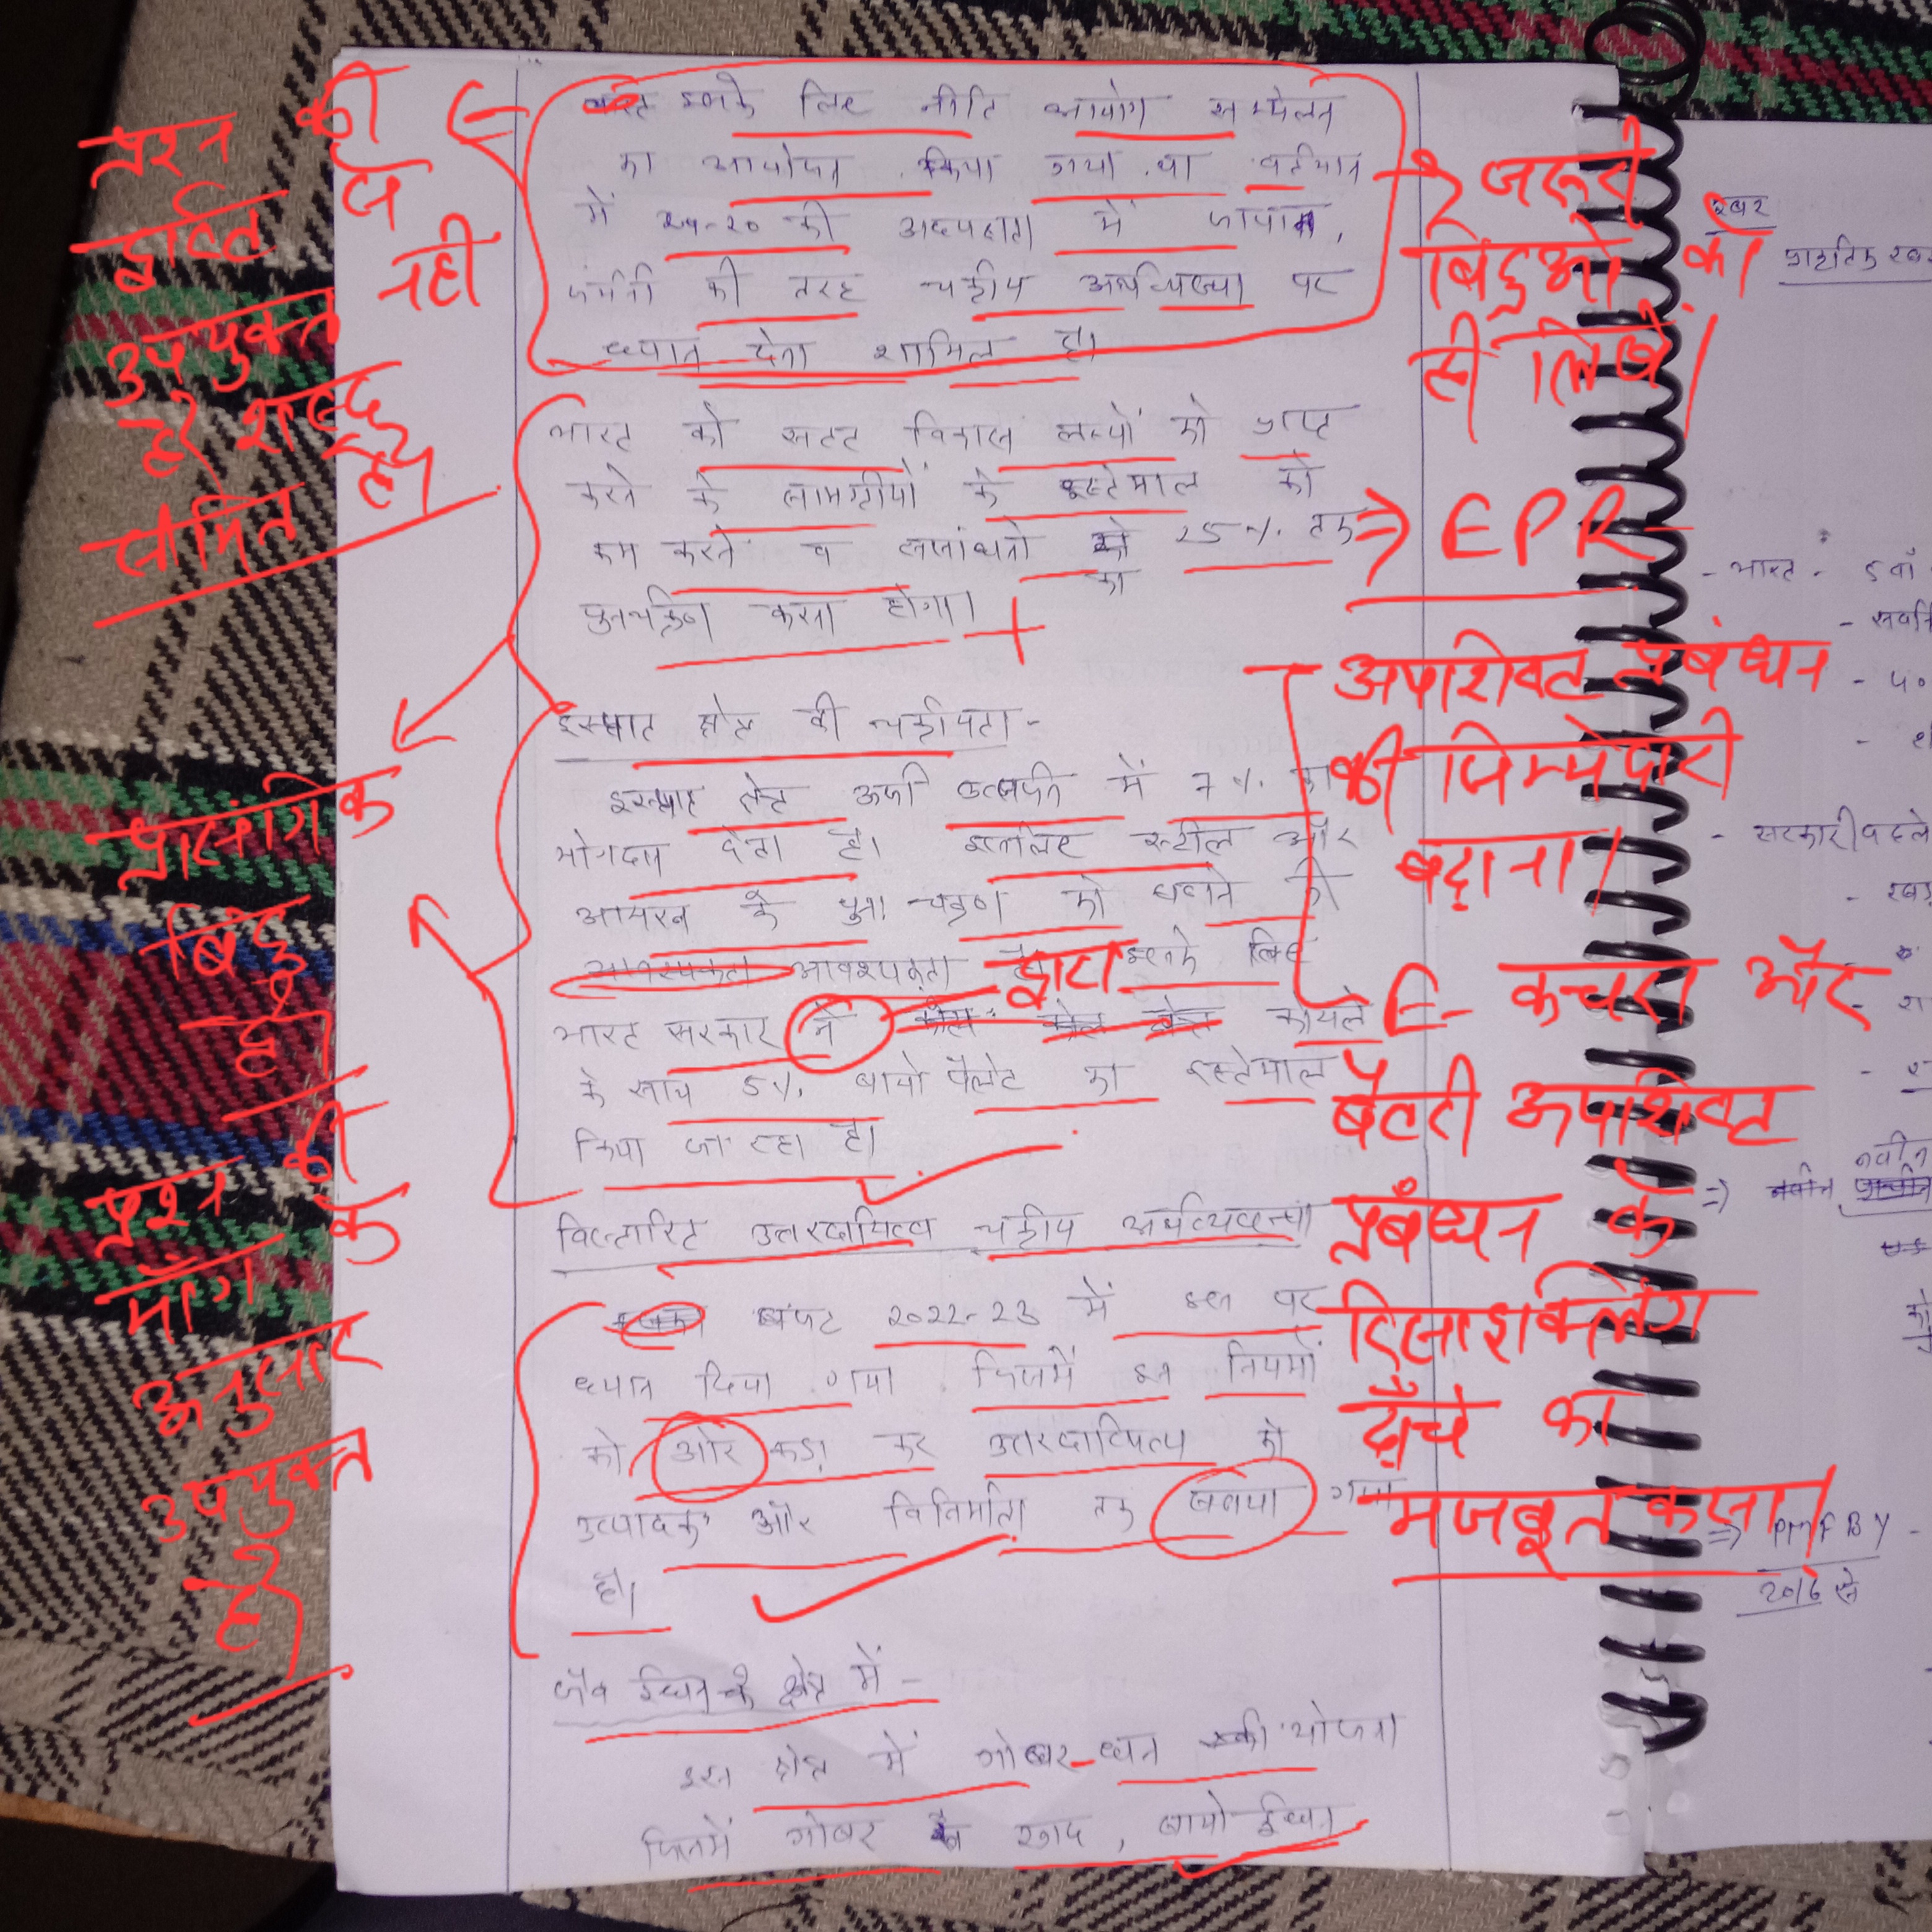 इसके लिए नीति आयोग सम्मेलन
का आयोजन किया गया था वर्तमान
में की अध्यक्षता में जापान,
जर्मनी की तरह चक्रीय अर्थव्यवस्था पर
ध्यान देना शामिल है।
भारत को सतत विकास लक्ष्यों को प्राप्त
करने के सामग्रीयों के इस्तेमाल को
कम करने व संसाधनो को 25% तक
का
पुनर्चक्रण करना होगा।
इस्पात क्षेत्र की चक्रीयता -
इस्पात क्षेत्र ऊर्जा उत्सर्जन में 7% का
योगदान देता है। इसलिए स्टील और
आयरन के पुनः चक्रण को बढाने की
आवश्यकता है। इसके लिए
भारत सरकार ने कोयले
के साथ 5% बायो पैलेट का इस्तेमाल
किया जा रहा है।
विस्तारित उत्तरदायित्व चक्रीय अर्थव्यवस्था
बजट 2022-23 में इस पर
ध्यान दिया गया जिसमें इन नियमों
को और कड़ा कर उत्तरदायित्व को
उत्पादक और विनिर्माता तक बनाया गया
है।
जैव ईंधन के क्षेत्र में -
इस क्षेत्र में गोबर-धन की योजना
जिसमें गोबर से खाद, बायो ईंधन
प्रश्न की
दृष्टि से
उपयुक्त नहीं
है शब्द
सीमित है।
प्रासंगिक
बिंदु
है।
प्रश्न की
माँग के
अनुसार
उपयुक्त
है।
जरूरी
बिंदुओं को
ही लिखें।
द्वारा
EPR
अपशिष्ट प्रबंधन
की जिम्मेदारी
बढ़ाना।
E- कचरा और
बैटरी अपशिष्ट
प्रबंधन के
रिसाइक्लिंग
ढाँचे को
मजबूत करना।
- भारत -
- सरकारी बदले
नवीन
PMFBY
2016 से